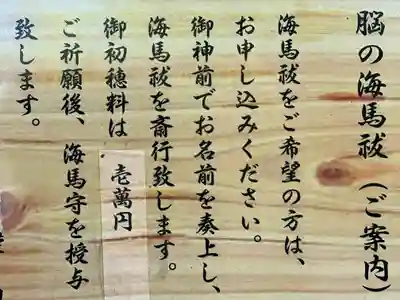 脳の海馬祓（ご案内）
海馬祓をご希望の方は、
お申し込みください。
御神前でお名前を奏上し、
海馬祓を斎行致します。
御初穂料は 壱萬円
ご祈願後、海馬守を授与
致します。